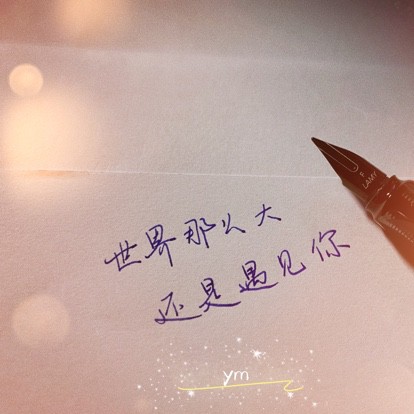 世界那么大
还是遇见你
LAMY
ym